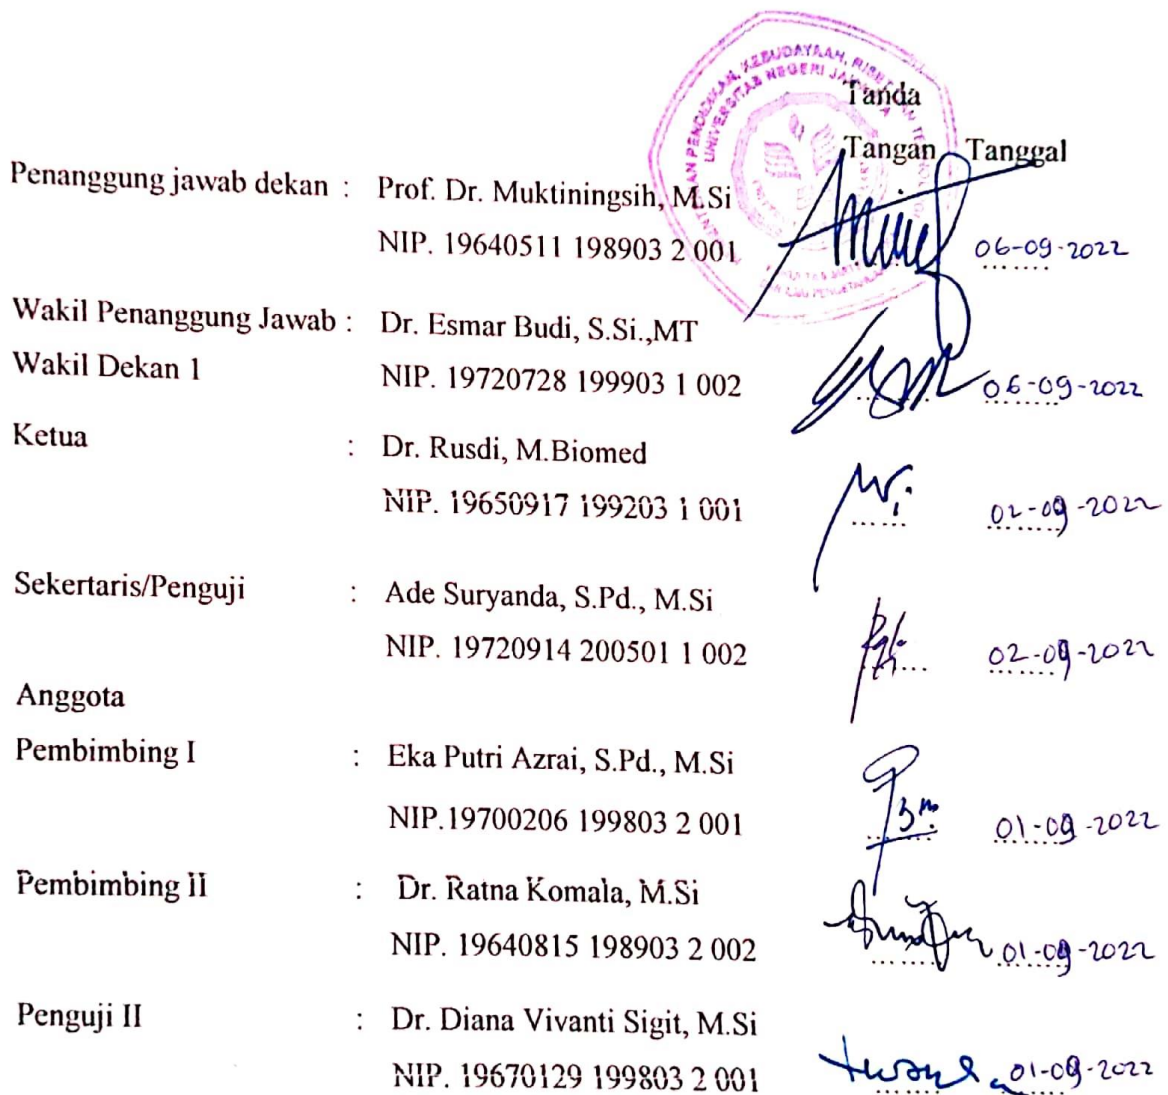 KEBUDAYAAN, RISET
UNIVERSITAS NEGERI JAKARTA
Tanda
Tangan Tanggal
Penanggung jawab dekan : Prof. Dr. Muktiningsih, M.Si
NIP. 19640511 198903 2 001 06-09-2022
Wakil Penanggung Jawab : Dr. Esmar Budi, S.Si.,MT
Wakil Dekan 1 NIP. 19720728 199903 1 002 06-09-2022
Ketua : Dr. Rusdi, M.Biomed
NIP. 19650917 199203 1 001 02-09-2022
Sekertaris/Penguji : Ade Suryanda, S.Pd., M.Si
NIP. 19720914 200501 1 002 02-09-2022
Anggota
Pembimbing I : Eka Putri Azrai, S.Pd., M.Si
NIP.19700206 199803 2 001 01-09-2022
Pembimbing II : Dr. Ratna Komala, M.Si
NIP. 19640815 198903 2 002 01-09-2022
Penguji II : Dr. Diana Vivanti Sigit, M.Si
NIP. 19670129 199803 2 001 01-09-2022